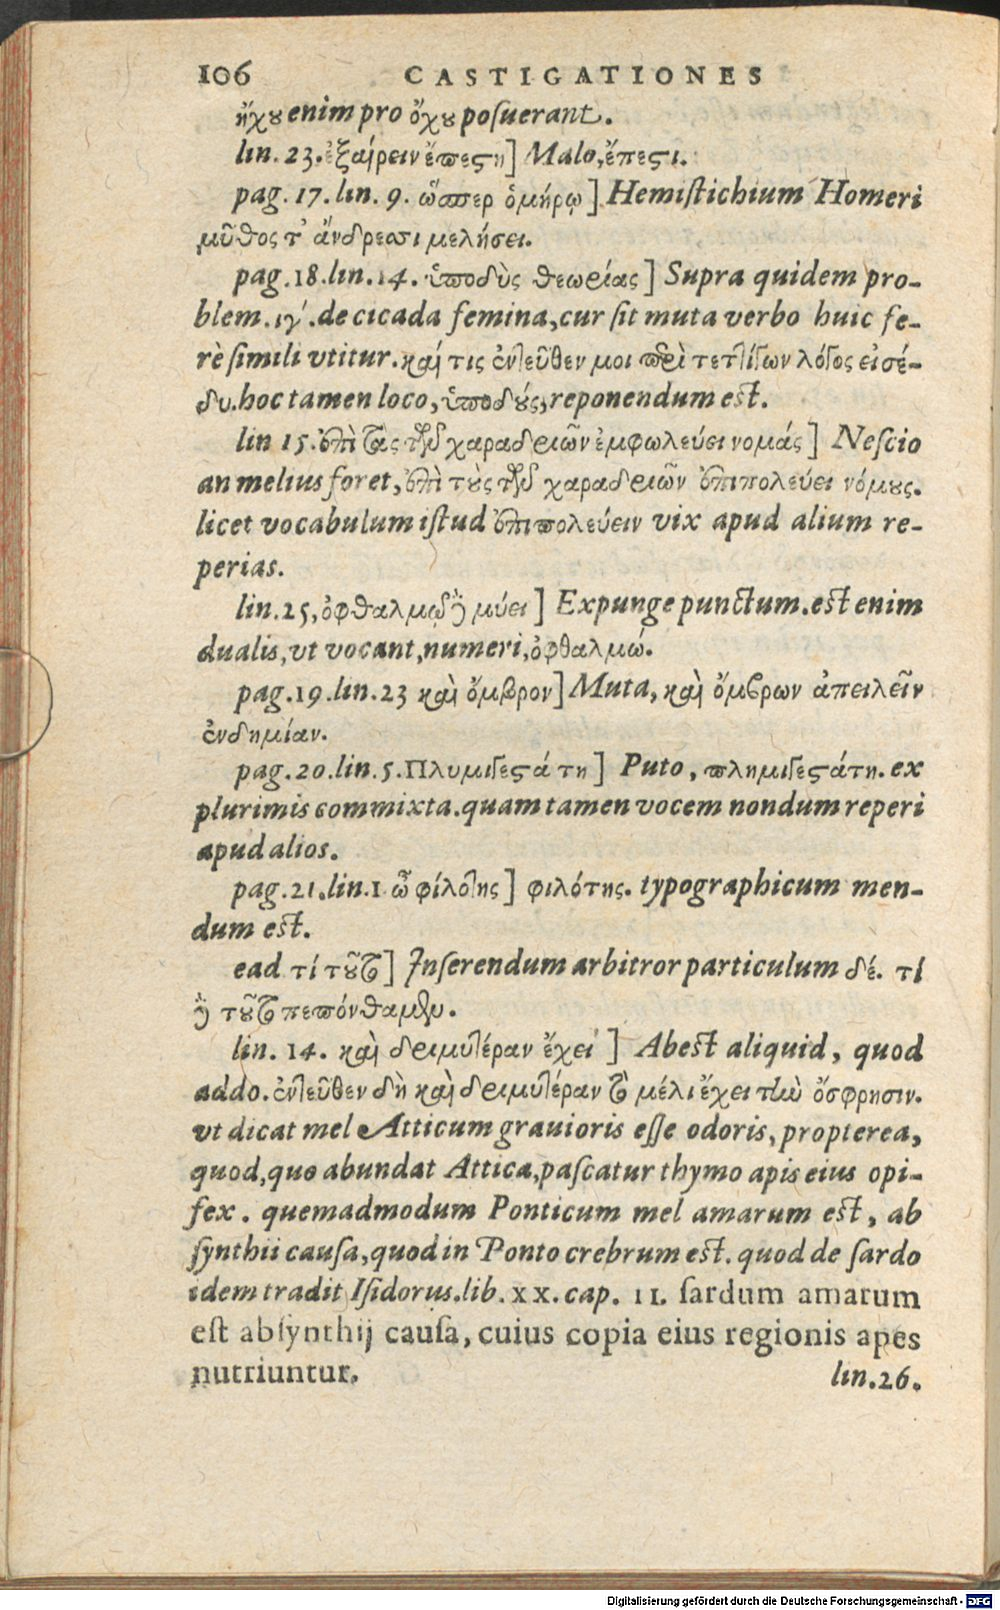 106 CASTIGATIONES
ἤχου enim pro ὄχου posuerant.
lin. 23. ἐξαίρειν ἔπεςη] Malo, ἔπεςι.
pag. 17. lin. 9. ὥσπερ ὁμήρῳ] Hemiſtichium Homeri
μῦθος τ' ἄνδρεσσι μελήσει.
pag. 18. lin. 14. ὑποδὺς θεωρίας] Supra quidem pro-
blem. ιγ΄. de cicada femina, cur ſit muta verbo huic fe-
rè ſimili vtitur. καί τις ἐντεῦθεν μοι περὶ τεττίγων λόγος εἰσέ-
δυ. hoc tamen loco, ὑποδύς, reponendum eſt.
lin 15. ἐπὶ τὰς τῶν χαραδριῶν ἐμφωλεύει νομάς] Neſcio
an melius foret, ἐπὶ τοὺς τῶν χαραδριῶν ἐπιπολεύει νόμους.
licet vocabulum iſtud ἐπιπολεύειν vix apud alium re-
perias.
lin. 25, ὀφθαλμῳ δὲ μύει] Expunge punctum. eſt enim
dualis, vt vocant, numeri, ὀφθαλμώ.
pag. 19. lin. 23 καὶ ὄμβρον] Muta, καὶ ὄμβρων ἀπειλεῖν
ἐνδημίαν.
pag. 20. lin. 5. Πλυμιγεςά τη] Puto, πλημιγεςάτη. ex
plurimis commixta. quam tamen vocem nondum reperi
apud alios.
pag. 21. lin. 1 ὦ φίλότης] φιλότης. typographicum men-
dum eſt.
ead τί τοῦτο] Inſerendum arbitror particulum δέ. τί
δὲ τοῦτο πεπόνθαμεν.
lin. 14. καὶ δριμυτέραν ἔχει] Abeſt aliquid, quod
addo. ἐντεῦθεν δὴ καὶ δριμυτέραν τὸ μέλι ἔχει τὴν ὄσφρησιν.
vt dicat mel Atticum grauioris eſſe odoris, propterea,
quod, quo abundat Attica, paſcatur thymo apis eius opi-
fex. quemadmodum Ponticum mel amarum eſt, ab
ſynthii cauſa, quod in Ponto crebrum eſt. quod de ſardo
idem tradit Iſidorus. lib. xx. cap. 11. ſardum amarum
eſt abſynthij cauſa, cuius copia eius regionis apes
nutriuntur. lin. 26.
Digitalisierung gefördert durch die Deutsche Forschungsgemeinschaft - DFG